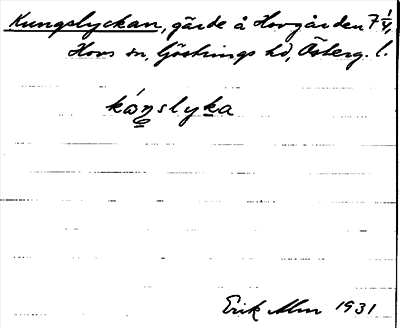 Kungslyckan, gärde å Hovgården 7 1/4,
Hovs sn, Göstrings hd, Österg. l.
kóŋslyka
Erik Alm 1931